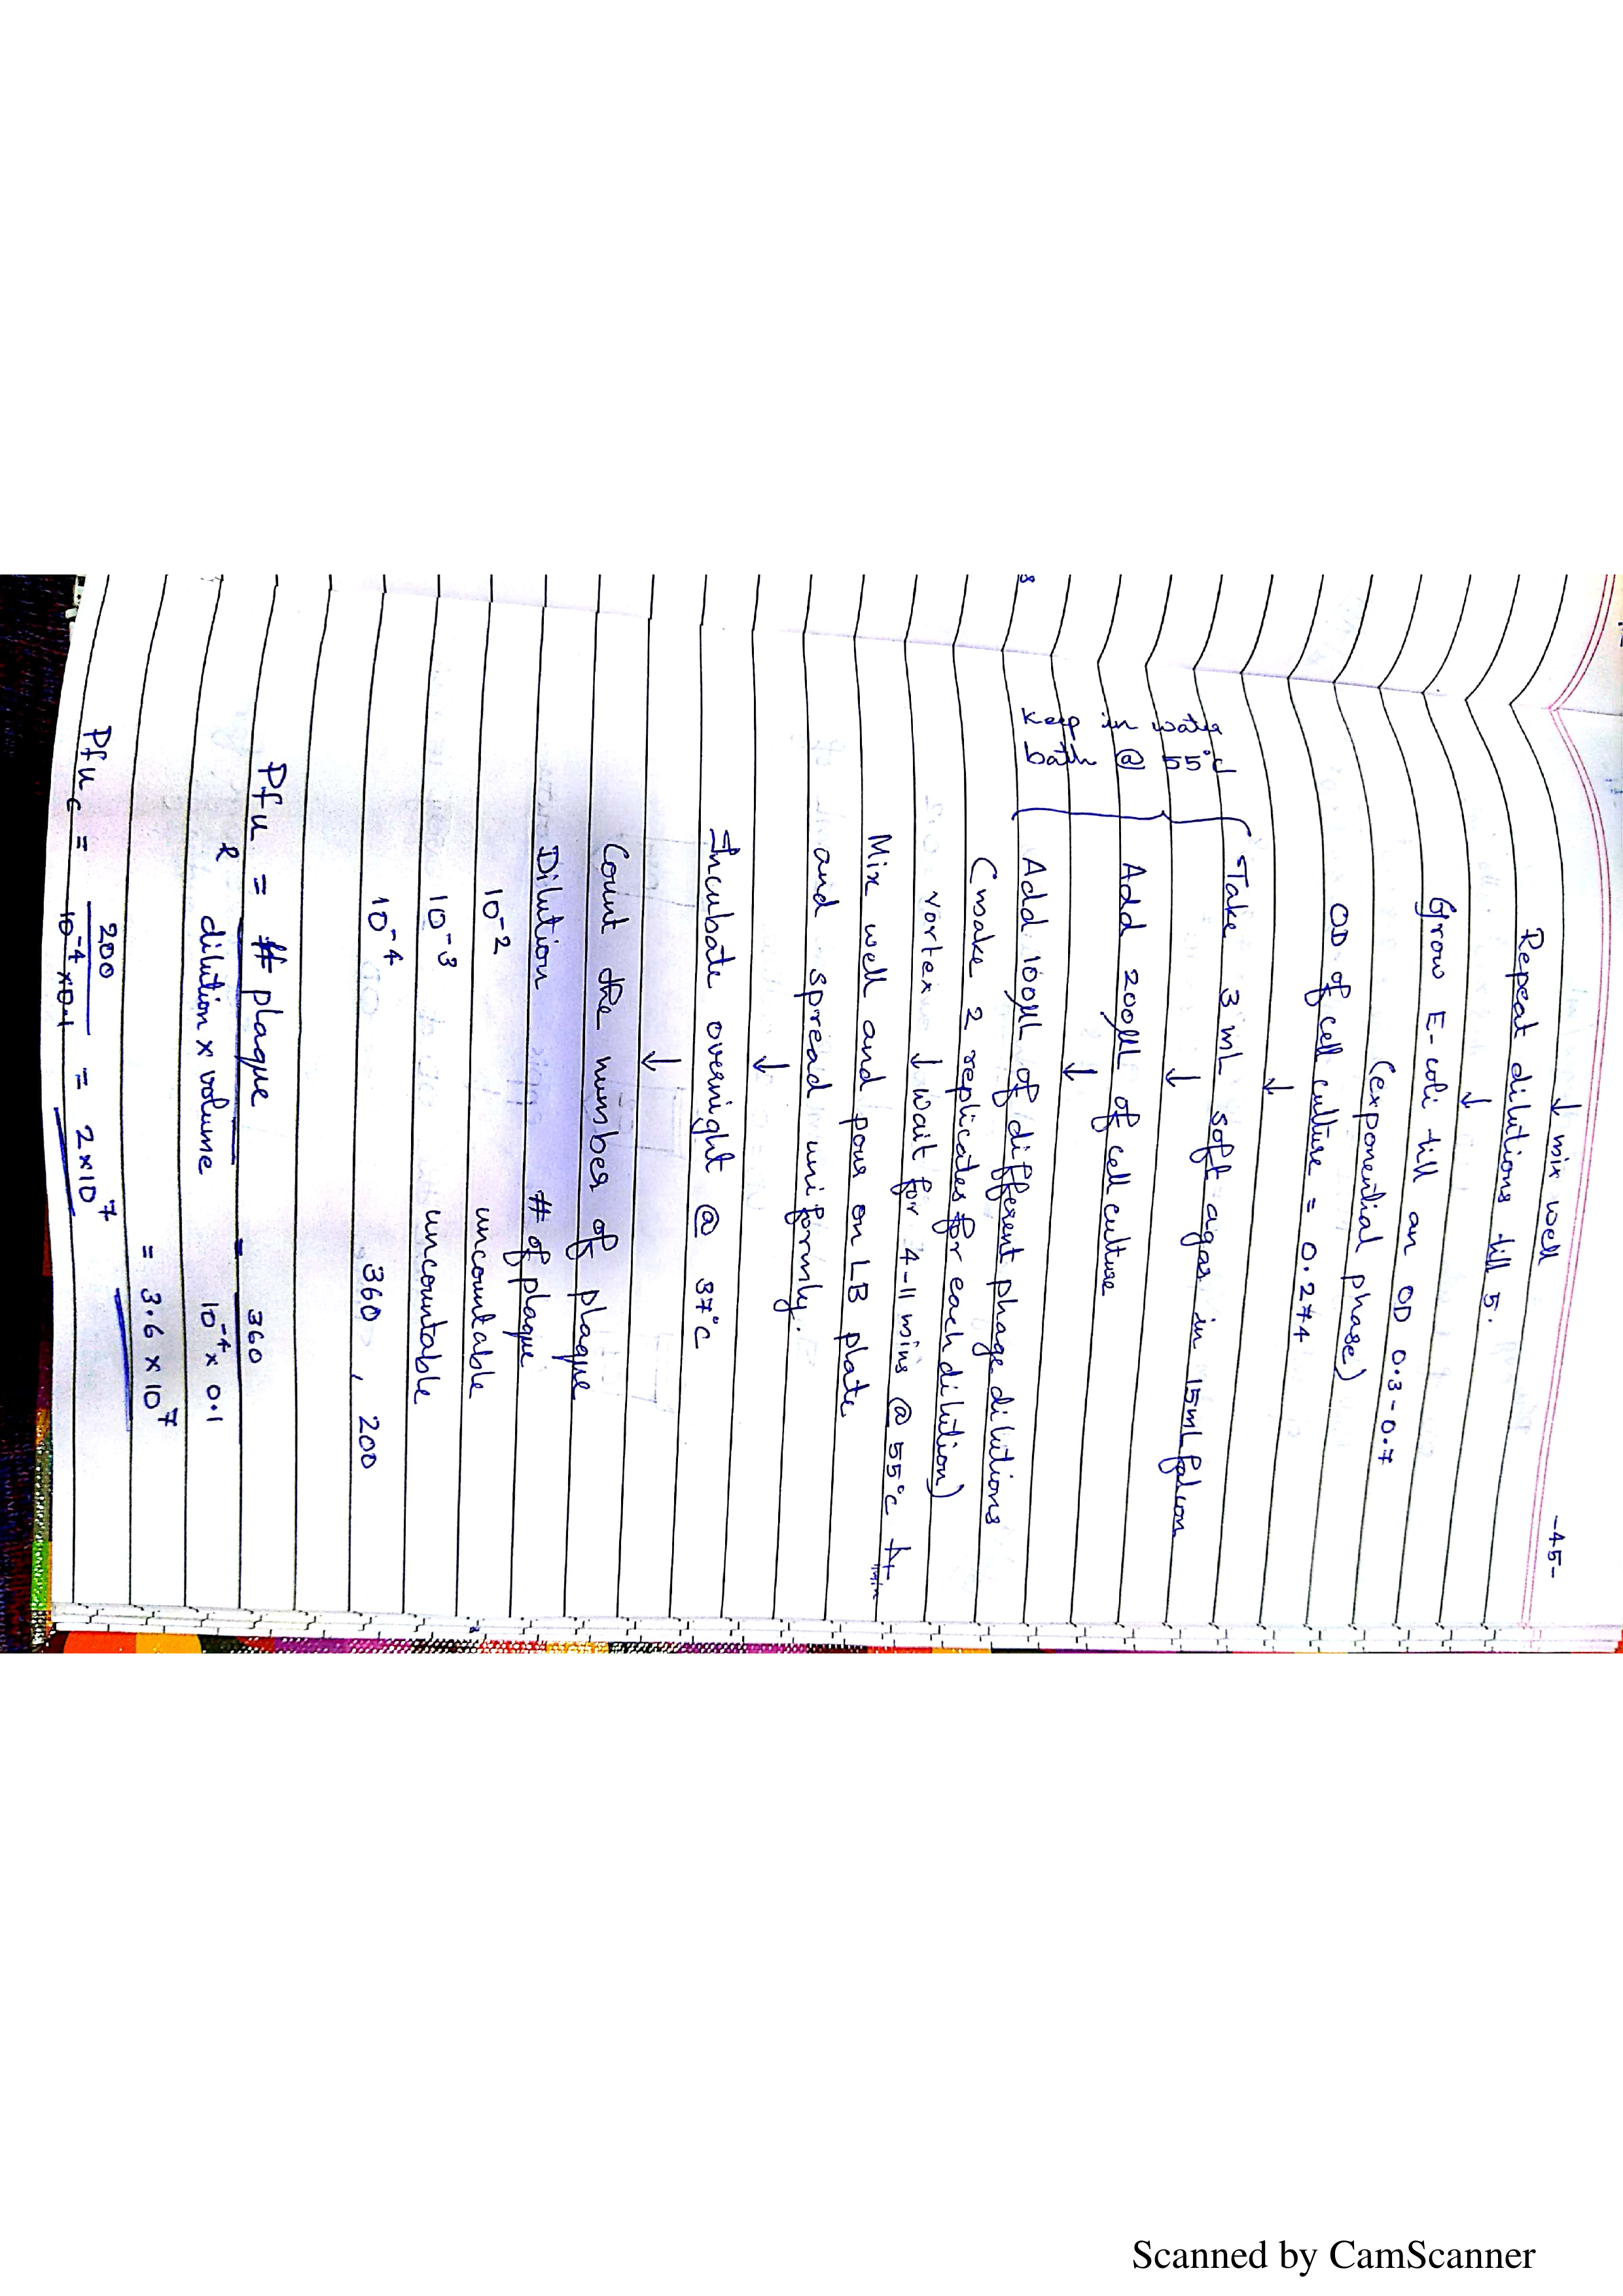 -45-
↓ mix well
Repeat dilutions till 5.
↓
Grow E-coli till an OD 0.3-0.7
(exponential phase)
OD of cell culture = 0.274
↓
Take 3 mL soft agar in 15mL falcon
↓
Keep in water
bath @ 55°C
Add 200μl of cell culture
↓
Add 100μL of different phage dilutions
(make 2 replicates for each dilution)
vortex ↓ wait for 4-11 mins @ 55°C
Mix well and pour on LB plate
and spread uniformly.
↓
Incubate overnight @ 37°C
↓
Count the number of plaque
Dilution # of plaque
10⁻² uncountable
10⁻³ uncountable
10⁻⁴ 360, 200
Pfu = # plaque = 360
dilution x volume 10⁻⁴ x 0.1
= 3.6 x 10⁷
Pfu = 200 = 2x10⁷
10⁻⁴ x 0.1
Scanned by CamScanner